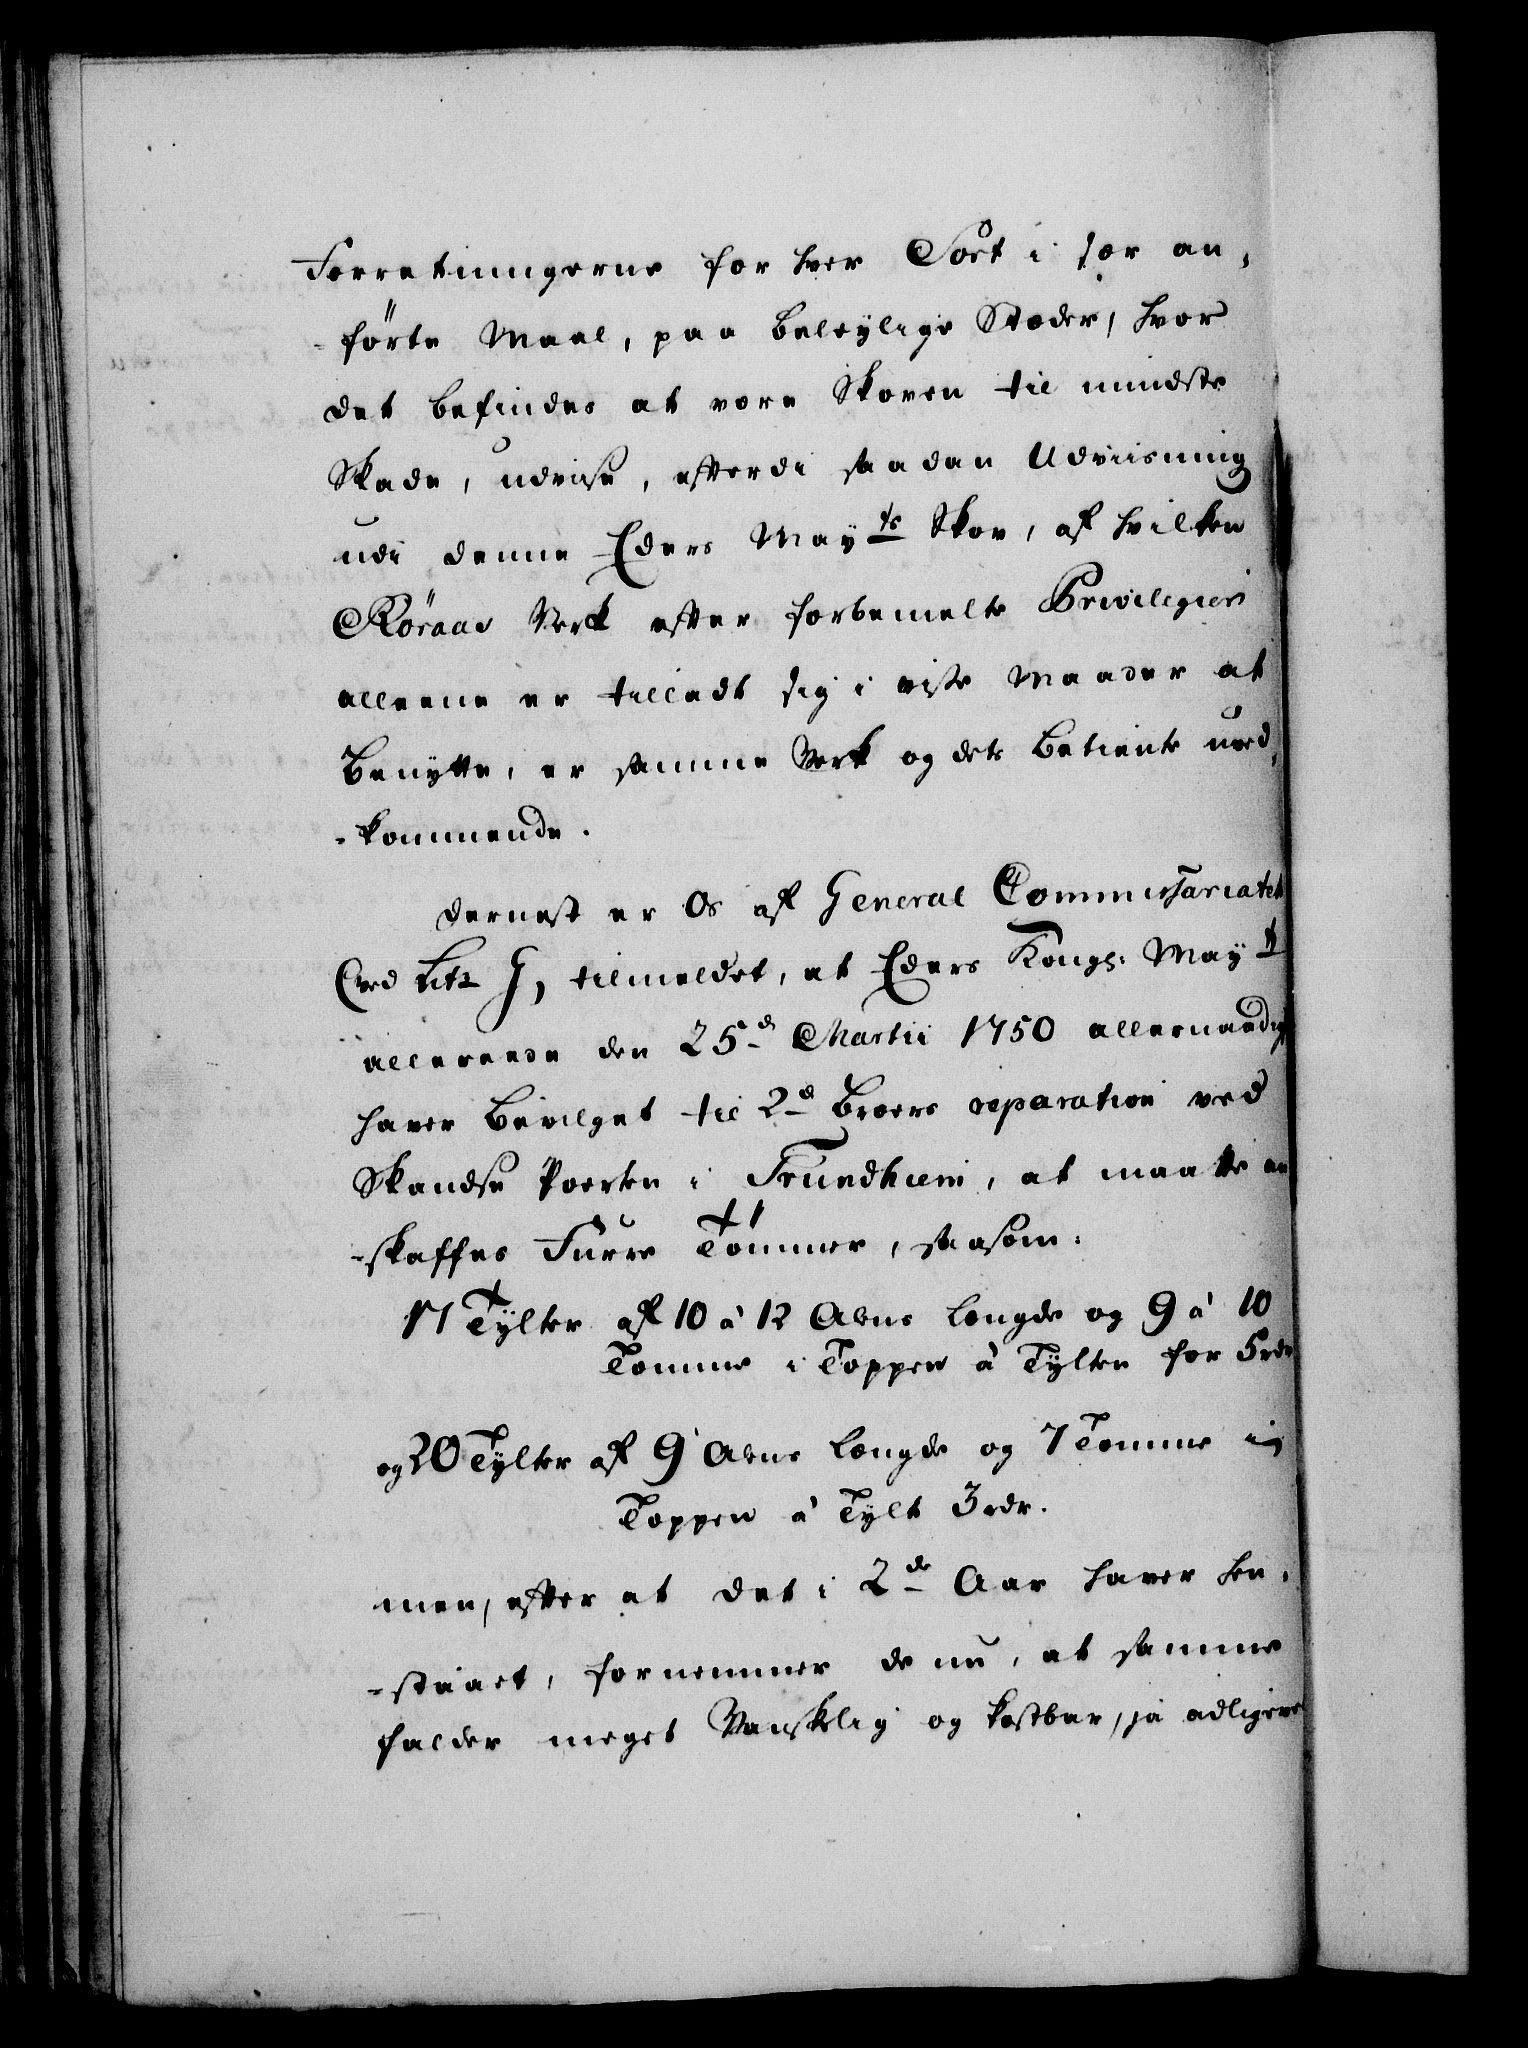 Forretningerne for hver Sort i sær an-
-førte Maal, paa beleylige Stæder, hvor
det befindes at være Skoven til mindste
Skade, udviise, efterdi saadan Udviisning
udi denne Eders Mayts Skov, af hvilken
Røraas Verk efter forbemelte Privilegier
alleene er tilladt sig i visse Maader at
benytte, er samme Verk og dets Betiente uved-
-kommende.
dernest er Os af General Commissariatet
(ved Litr G, tilmeldet, at Eders Kongl: Mayt
allereede den 25d Martii 1750 allernaadigst
haver bevilget til 2d Broers reparation ved
Skandse Poerten i Trundhiem, at maatte an
-skaffes Furre Tømmer, saasom:
17 Tylter af 10 à 12 Alens Længde og 9 à 10
Tomme i Toppen à Tylten for 5 rdr
og 20 Tylter af 9 Alens Længde og 7 Tomme i
Toppen à Tylt 3 rdr.
men, efter at det i 2de Aar haver hen-
-staaet, fornemmer de nu, at samme
falder meget Vanskelig og kostbar, ja adligere